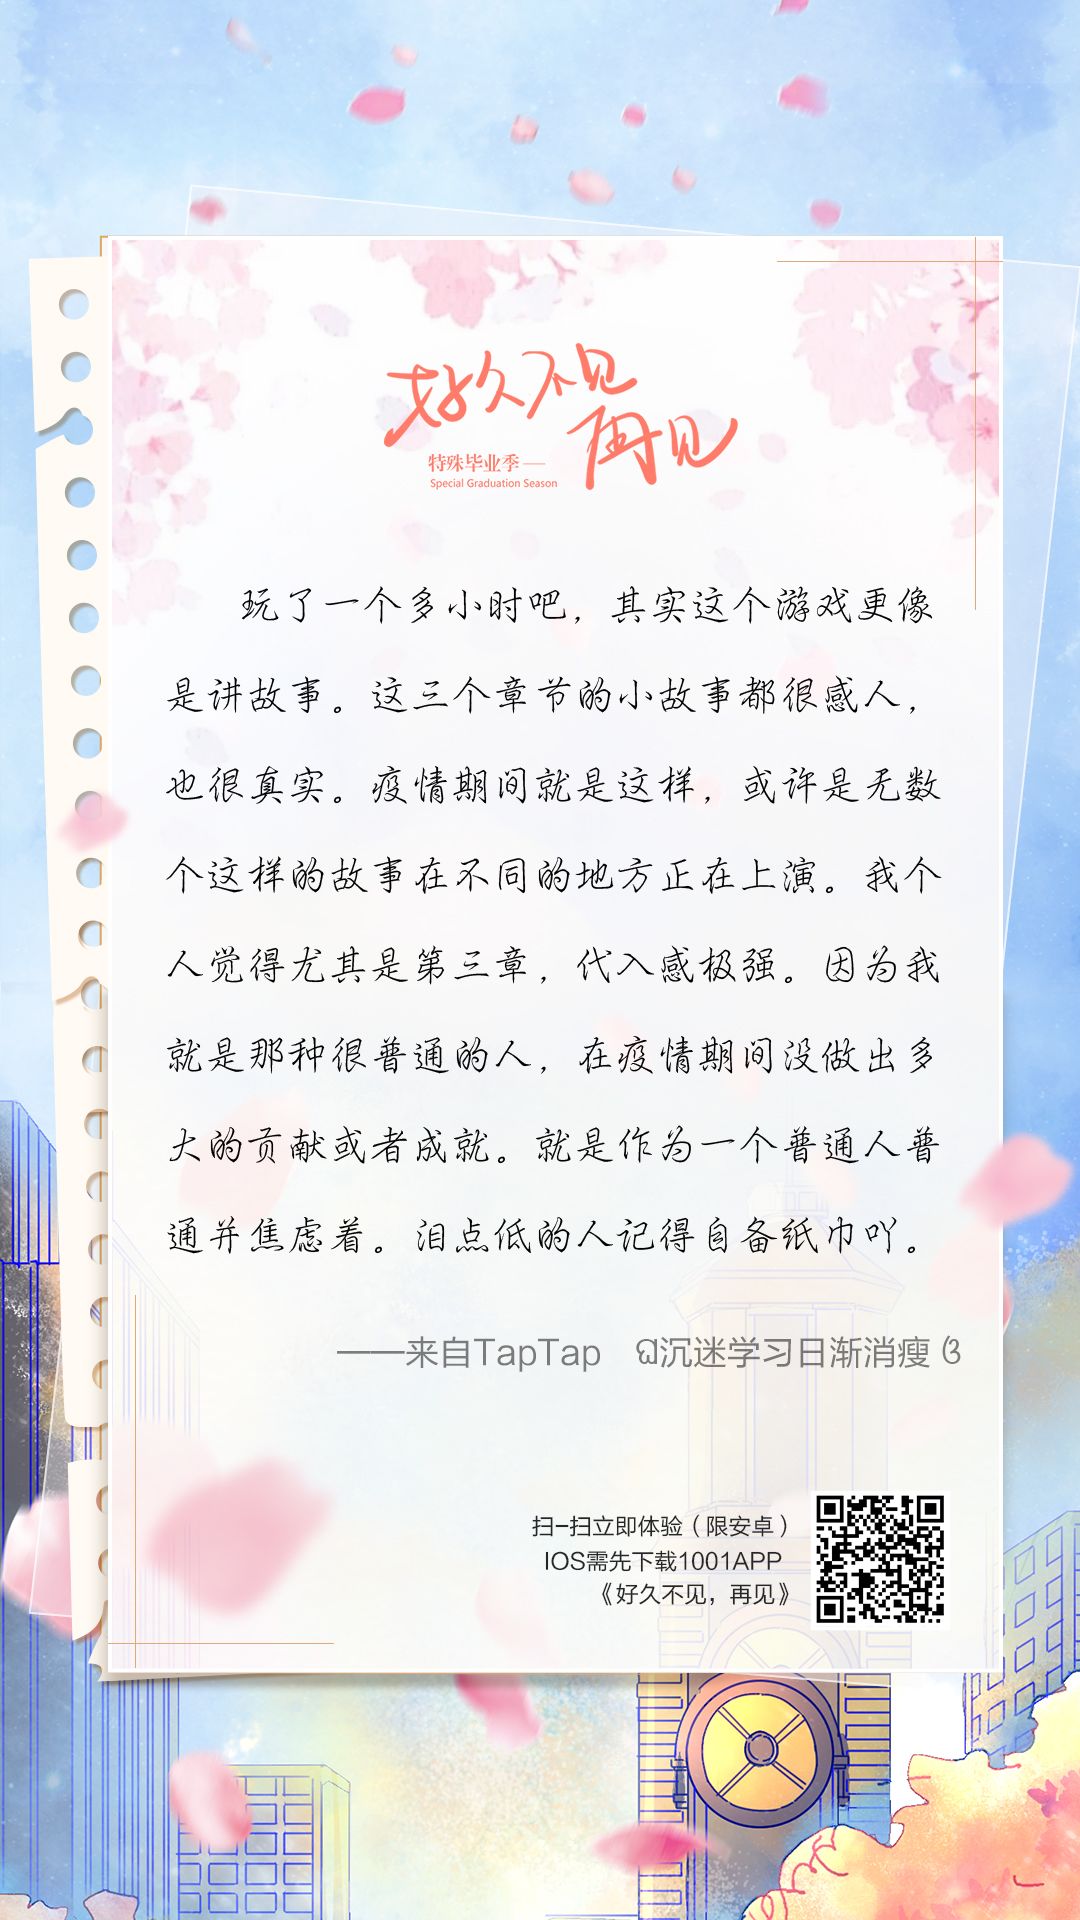 好久不见
再见
特殊毕业季——
Special Graduation Season
玩了一个多小时吧，其实这个游戏更像
是讲故事。这三个章节的小故事都很感人，
也很真实。疫情期间就是这样，或许是无数
个这样的故事在不同的地方正在上演。我个
人觉得尤其是第三章，代入感极强。因为我
就是那种很普通的人，在疫情期间没做出多
大的贡献或者成就。就是作为一个普通人普
通并焦虑着。泪点低的人记得自备纸巾吖。
——来自TapTap 沉迷学习日渐消瘦
扫一扫立即体验（限安卓）
IOS需先下载1001APP
《好久不见，再见》